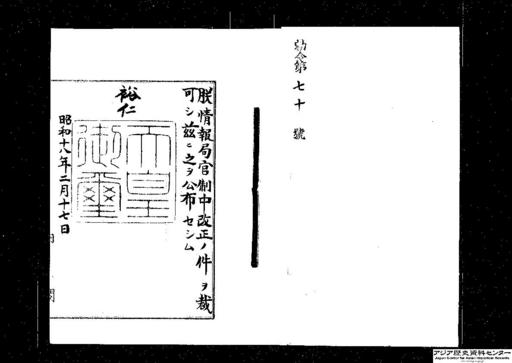 勅令第七十號
朕情報局官制中改正ノ件ヲ裁
可シ茲ニ之ヲ公布セシム
裕仁
天皇
御璽
昭和十八年二月十七日
アジア歴史資料センター
Japan Center for Asian Historical Records